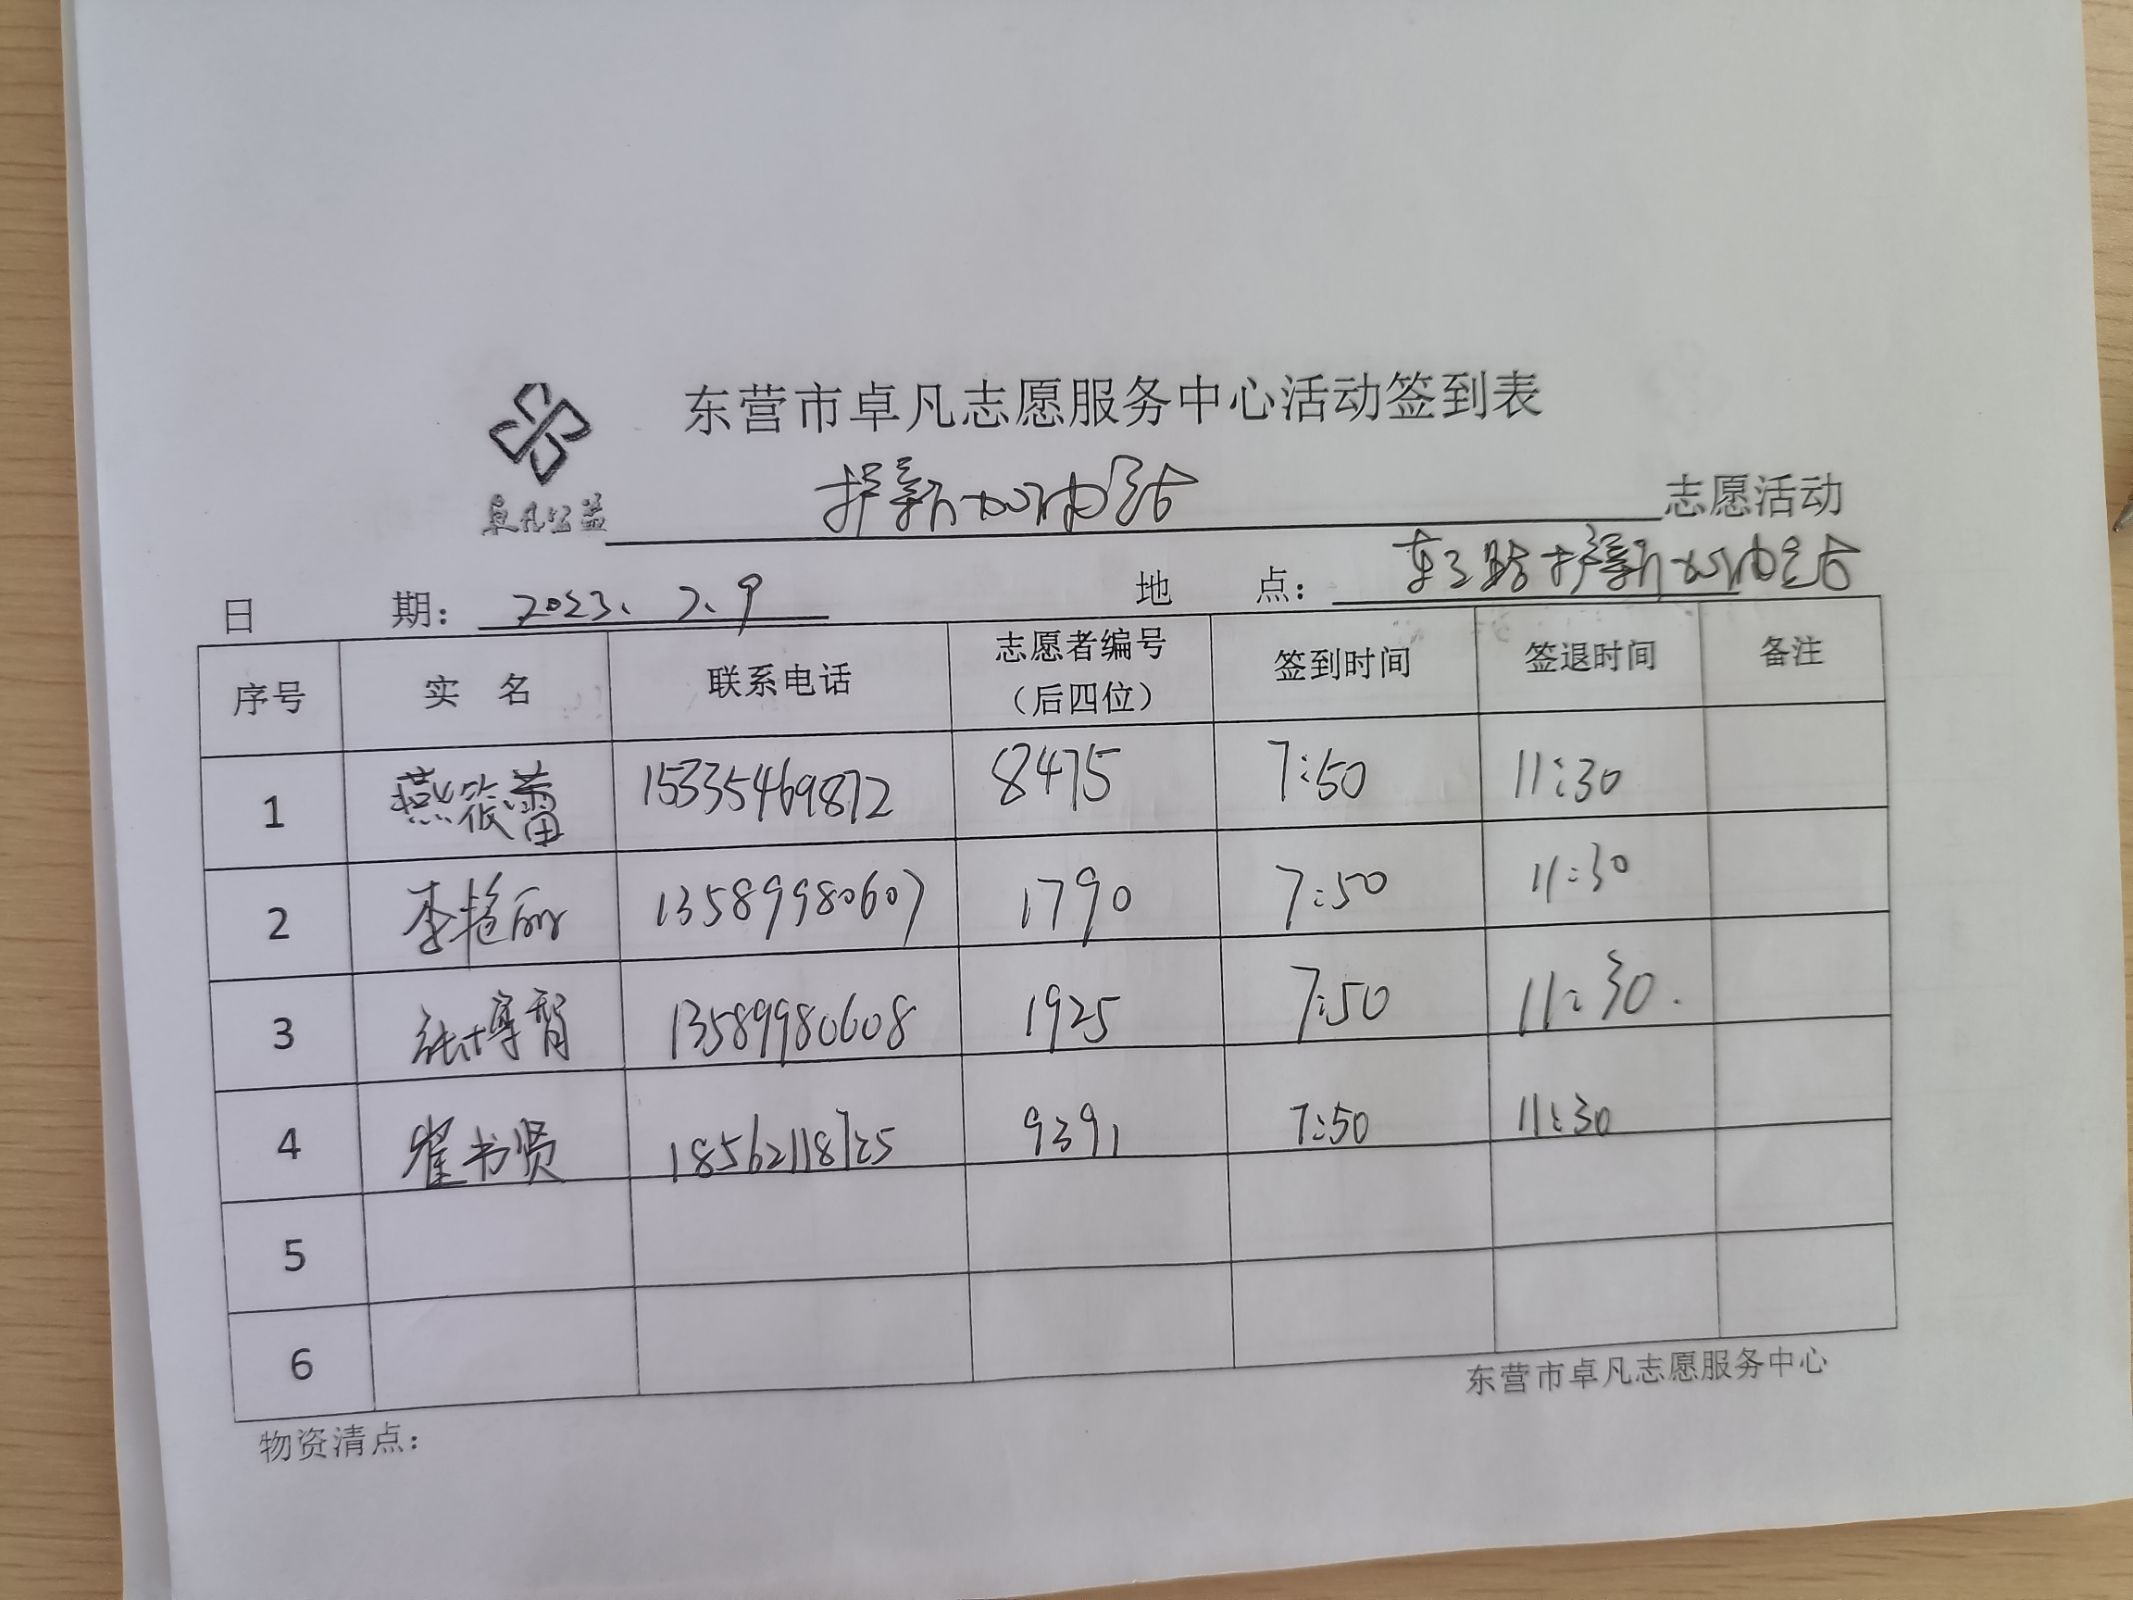 东营市卓凡志愿服务中心活动签到表
卓凡公益
护新加油站 志愿活动
日 期： 2023、7、9 地 点： 东三路护新加油站
序号 实 名 联系电话 志愿者编号（后四位） 签到时间 签退时间 备注
1 燕筱蕾 15335469872 8475 7:50 11:30
2 李艳丽 13589980607 1790 7:50 11:30
3 张博智 13589980608 1925 7:50 11:30.
4 崔书贤 18562118725 9391 7:50 11:30
5
6
东营市卓凡志愿服务中心
物资清点：